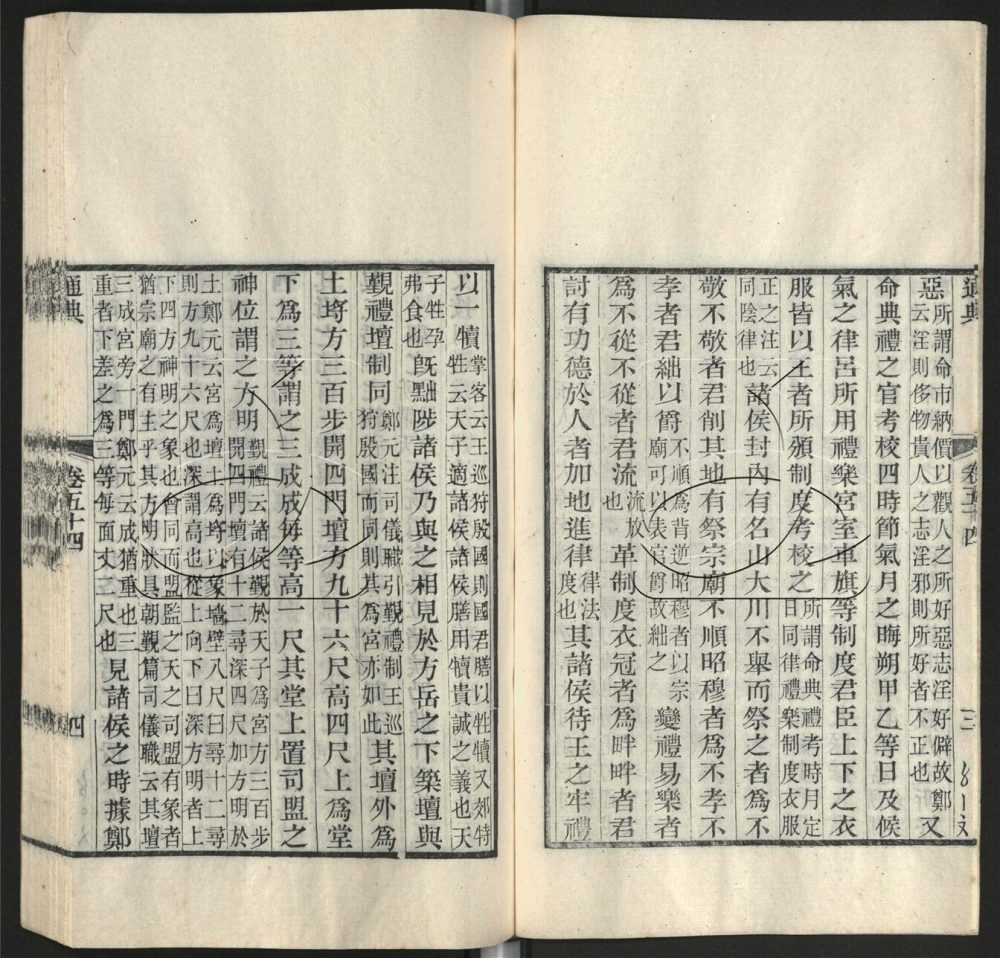 通典
卷五十四
三
惡所謂命市納價以觀人之所好惡志淫好僻故鄭
云淫則侈物貴人之志淫邪則所好者不正也又
命典禮之官考校四時節氣月之晦朔甲乙等日及候
氣之律呂所用禮樂宮室車旗等制度君臣上下之衣
服皆以王者所頒制度考校之所謂命典禮考時月定日同律禮樂制度衣服
正之注云同陰律也諸侯封內有名山大川不舉而祭之者為不
敬不敬者君削其地有祭宗廟不順昭穆者為不孝不
孝者君絀以爵不順為背逆昭穆者以宗廟可以表官爵故絀之變禮易樂者
為不從不從者君流流放也革制度衣冠者為畔畔者君
討有功德於人者加地進律律法度也其諸侯待王之牢禮
以一犢掌客云王巡狩殷國則國君膳以牲犢又郊特牲云天子適諸侯諸侯膳用犢貴誠之義也天
子牲孕弗食也既黜陟諸侯乃與之相見於方岳之下築壇與
覲禮壇制同鄭元注司儀職引覲禮制王巡狩殷國而同則其為宮亦如此其壇外為
土埒方三百步開四門壇方九十六尺高四尺上為堂
下為三等謂之三成成每等高一尺其堂上置司盟之
神位謂之方明覲禮云諸侯覲於天子為宮方三百步開四門壇有十二尋深四尺加方明於
土鄭元云宮為壇土為埒以象墻壁八尺曰尋十二尋
則方九十六尺也深謂高也從上向下曰深方明者上
下四方神明之象也會同而盟監之天之司盟有象者
猶宗廟之有主乎其方明狀具朝覲篇司儀職云其壇
三成宮旁一門鄭元云成猶重也三
重者下差之為三等每面丈二尺也見諸侯之時據鄭
通典
卷五十四
四